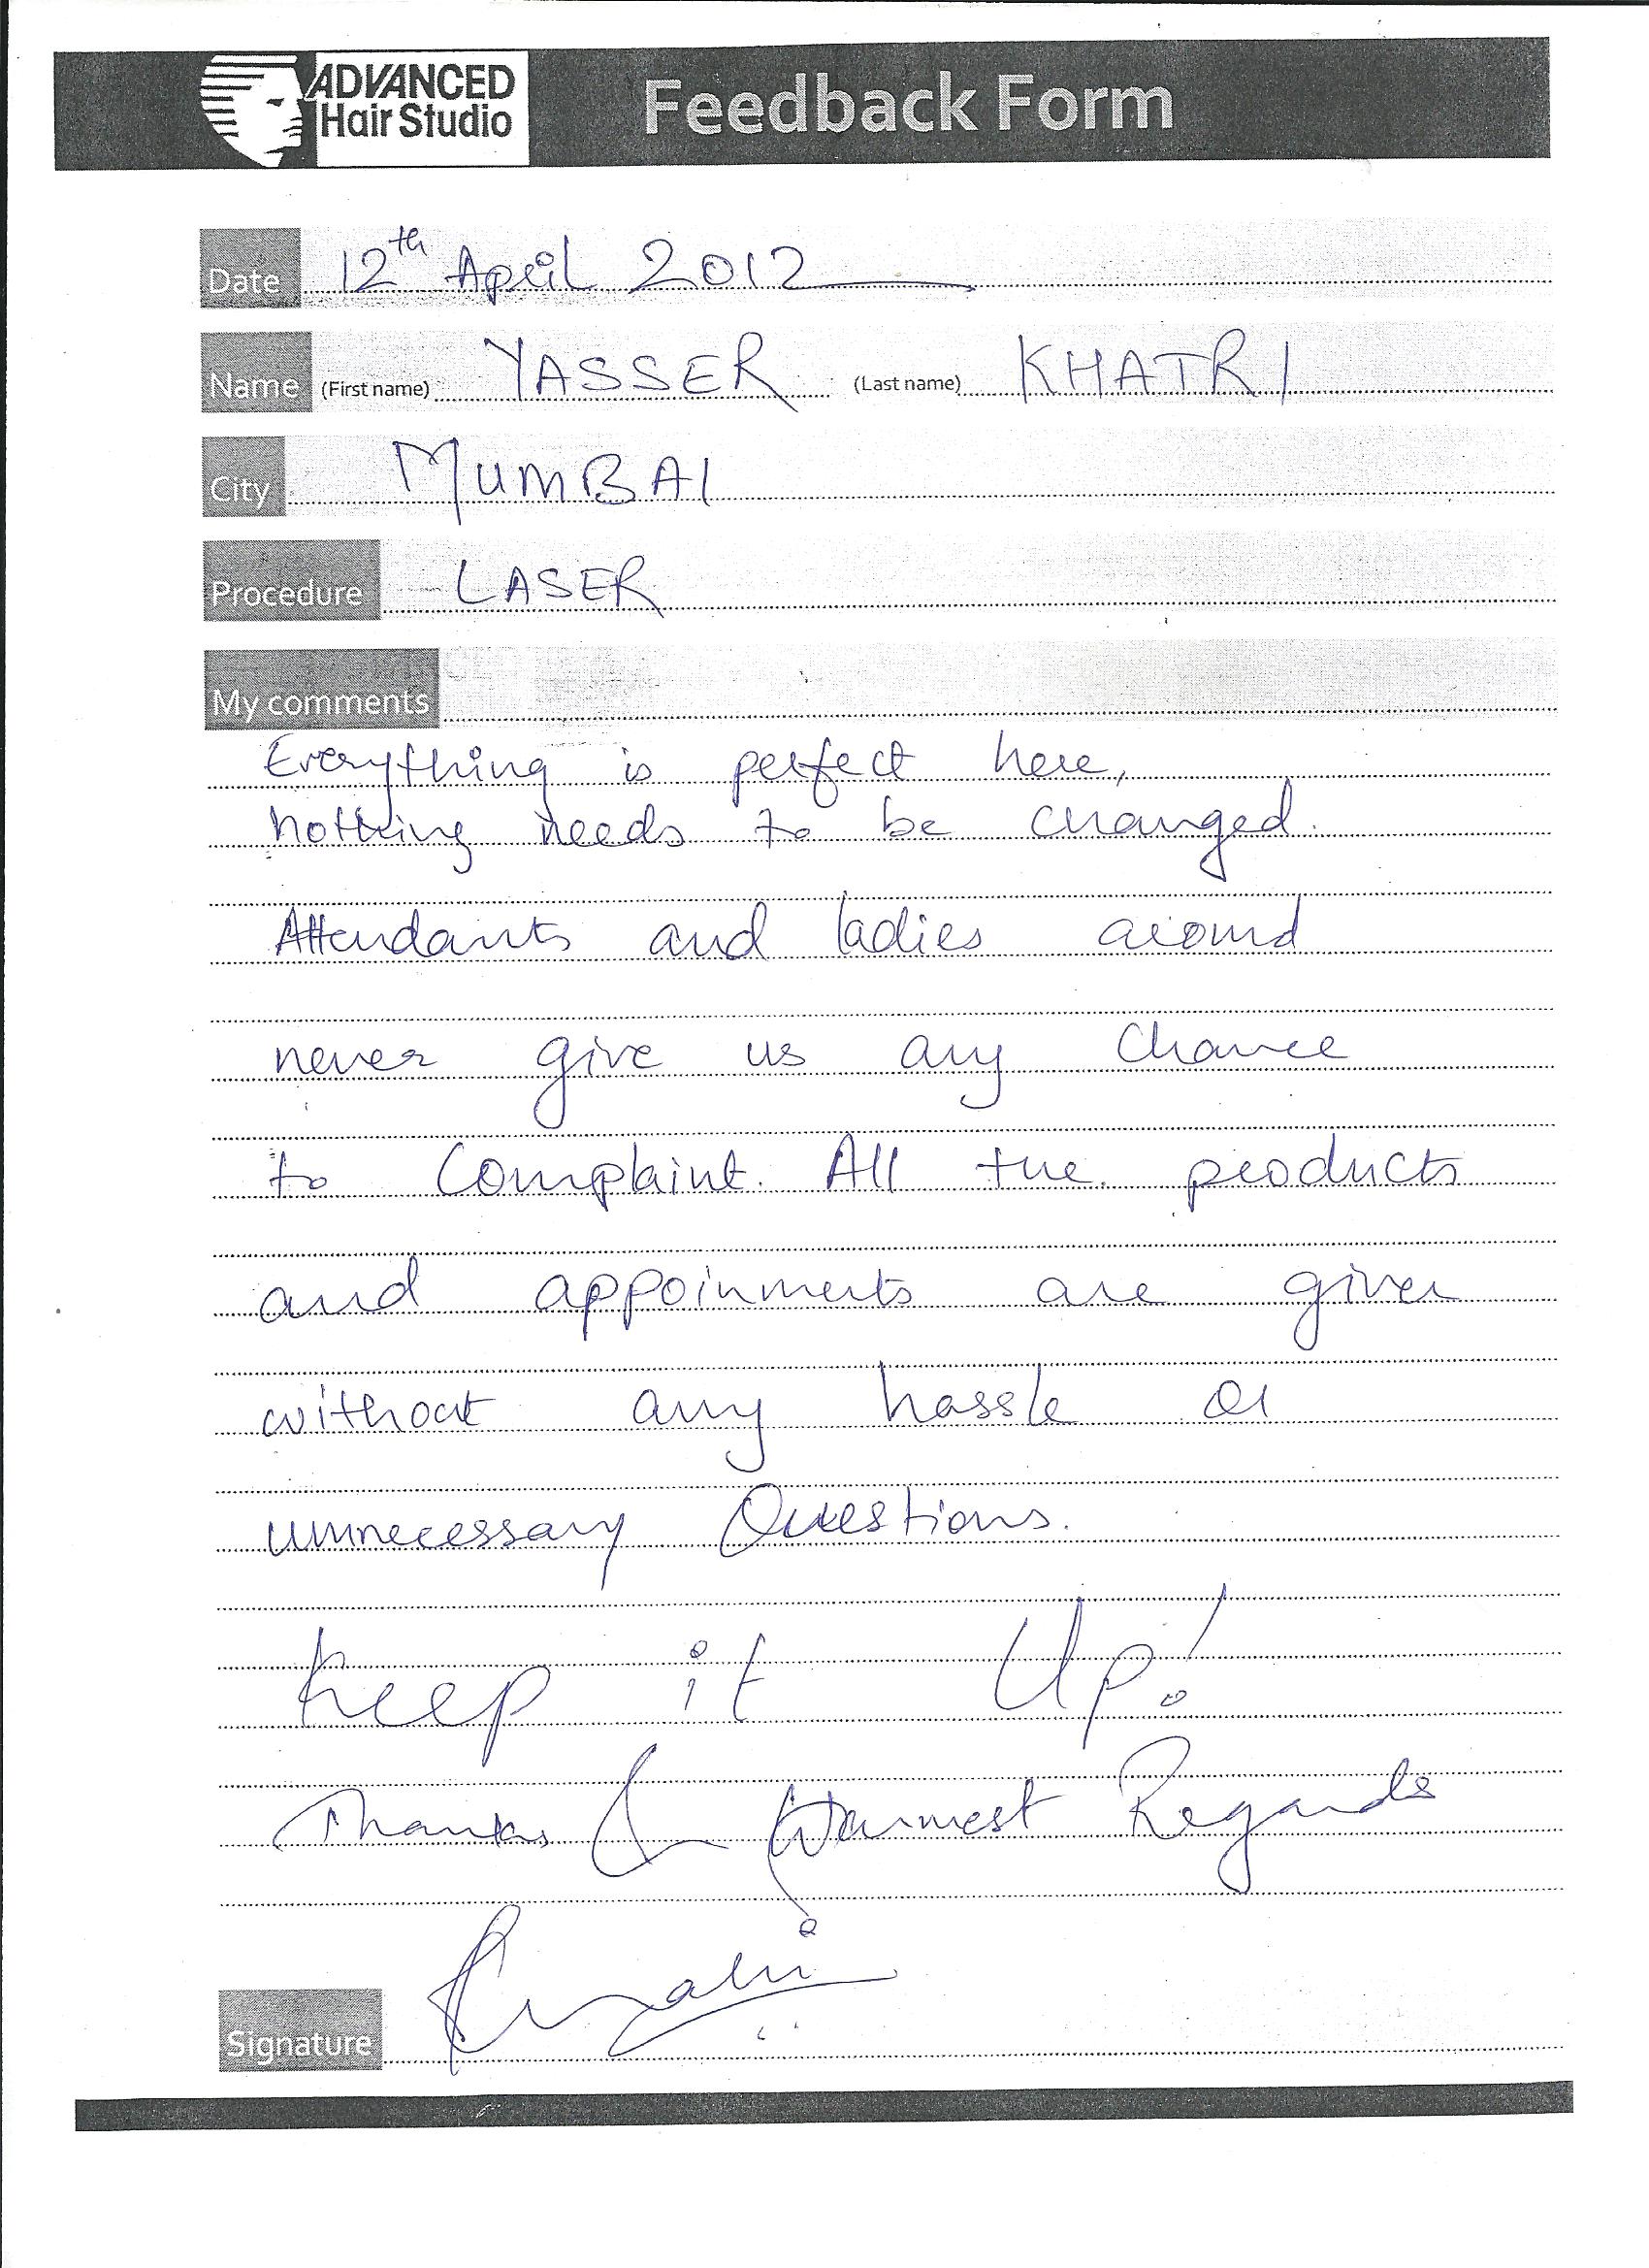 ADVANCED
Hair Studio
Feedback Form
Date 12th April 2012
Name (First name) YASSER (Last name) KHATRI
City MUMBAI
Procedure LASER
My comments
Everything is perfect here,
nothing needs to be changed.
Attendants and ladies around
never give us any chance
to Complaint. All the products
and appoinments are given
without any hassle or
unnecessary Questions.
Keep it Up!
Thanks & Warmest Regards
Signature